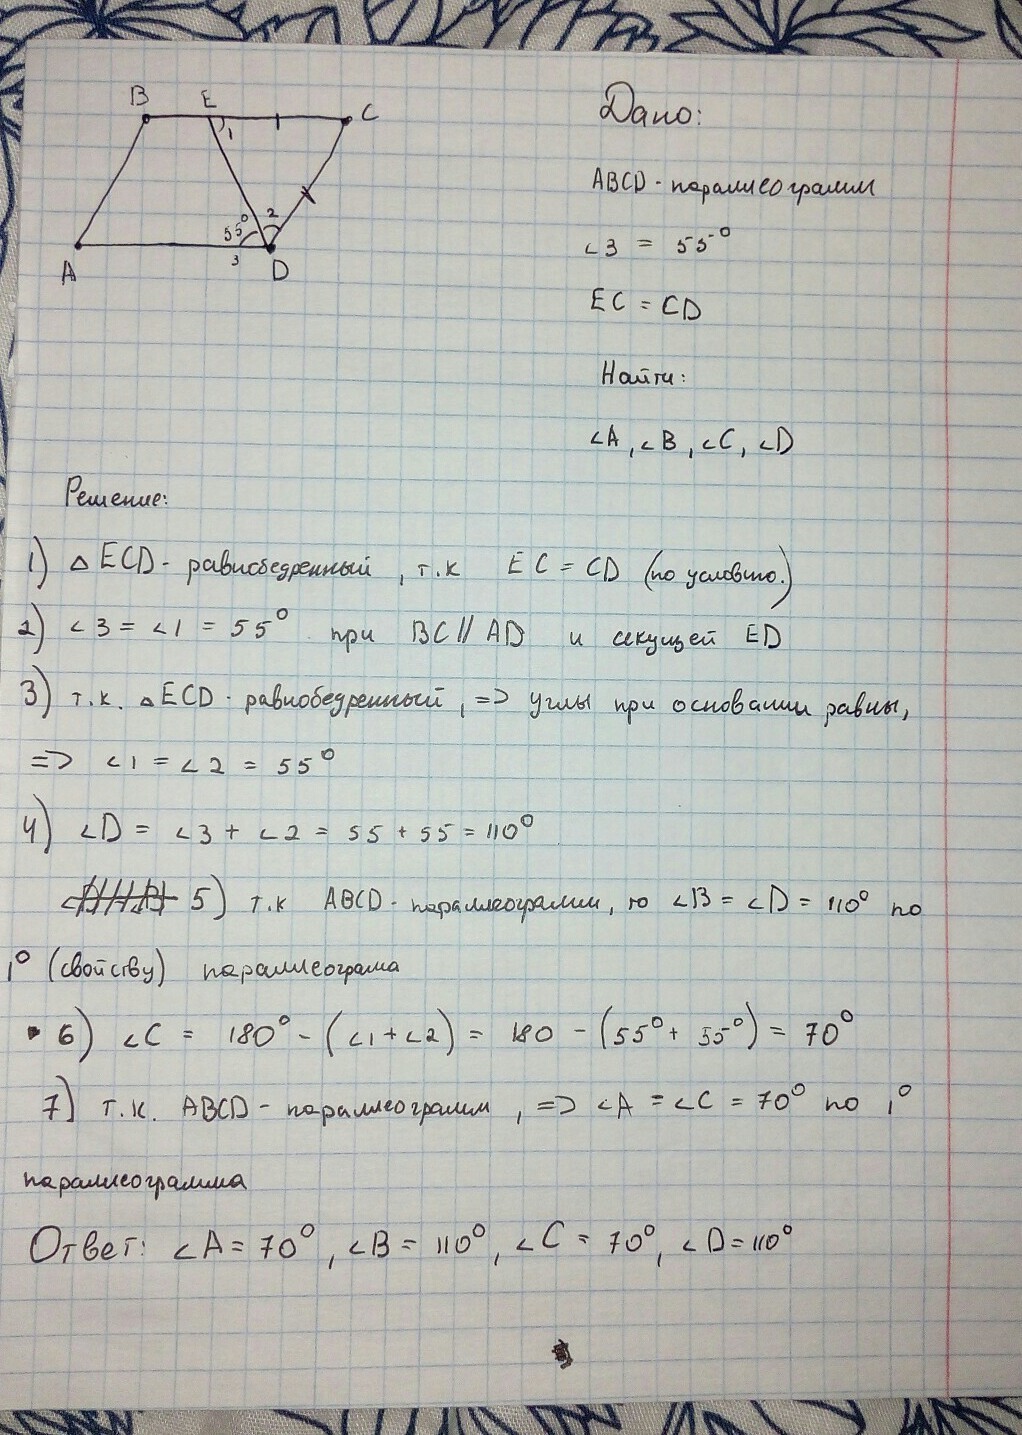 B E C
1
2
55°
3
A D
Дано:
ABCD - параллеограмм
∠3 = 55°
EC = CD
Найти:
∠A, ∠B, ∠C, ∠D
Решение:
1) △ECD - равнобедренный, т.к EC = CD (по условию.)
2) ∠3 = ∠1 = 55° при BC // AD и секущей ED
3) т.к. △ECD - равнобедренный, => углы при основании равны,
=> ∠1 = ∠2 = 55°
4) ∠D = ∠3 + ∠2 = 55 + 55 = 110°
5) т.к ABCD - параллеограмм, то ∠B = ∠D = 110° по
1° (свойству) параллеограма
6) ∠C = 180° - (∠1 + ∠2) = 180 - (55° + 55°) = 70°
7) т.к. ABCD - параллеограмм, => ∠A = ∠C = 70° по 1°
параллеограмма
Ответ: ∠A = 70°, ∠B = 110°, ∠C = 70°, ∠D = 110°